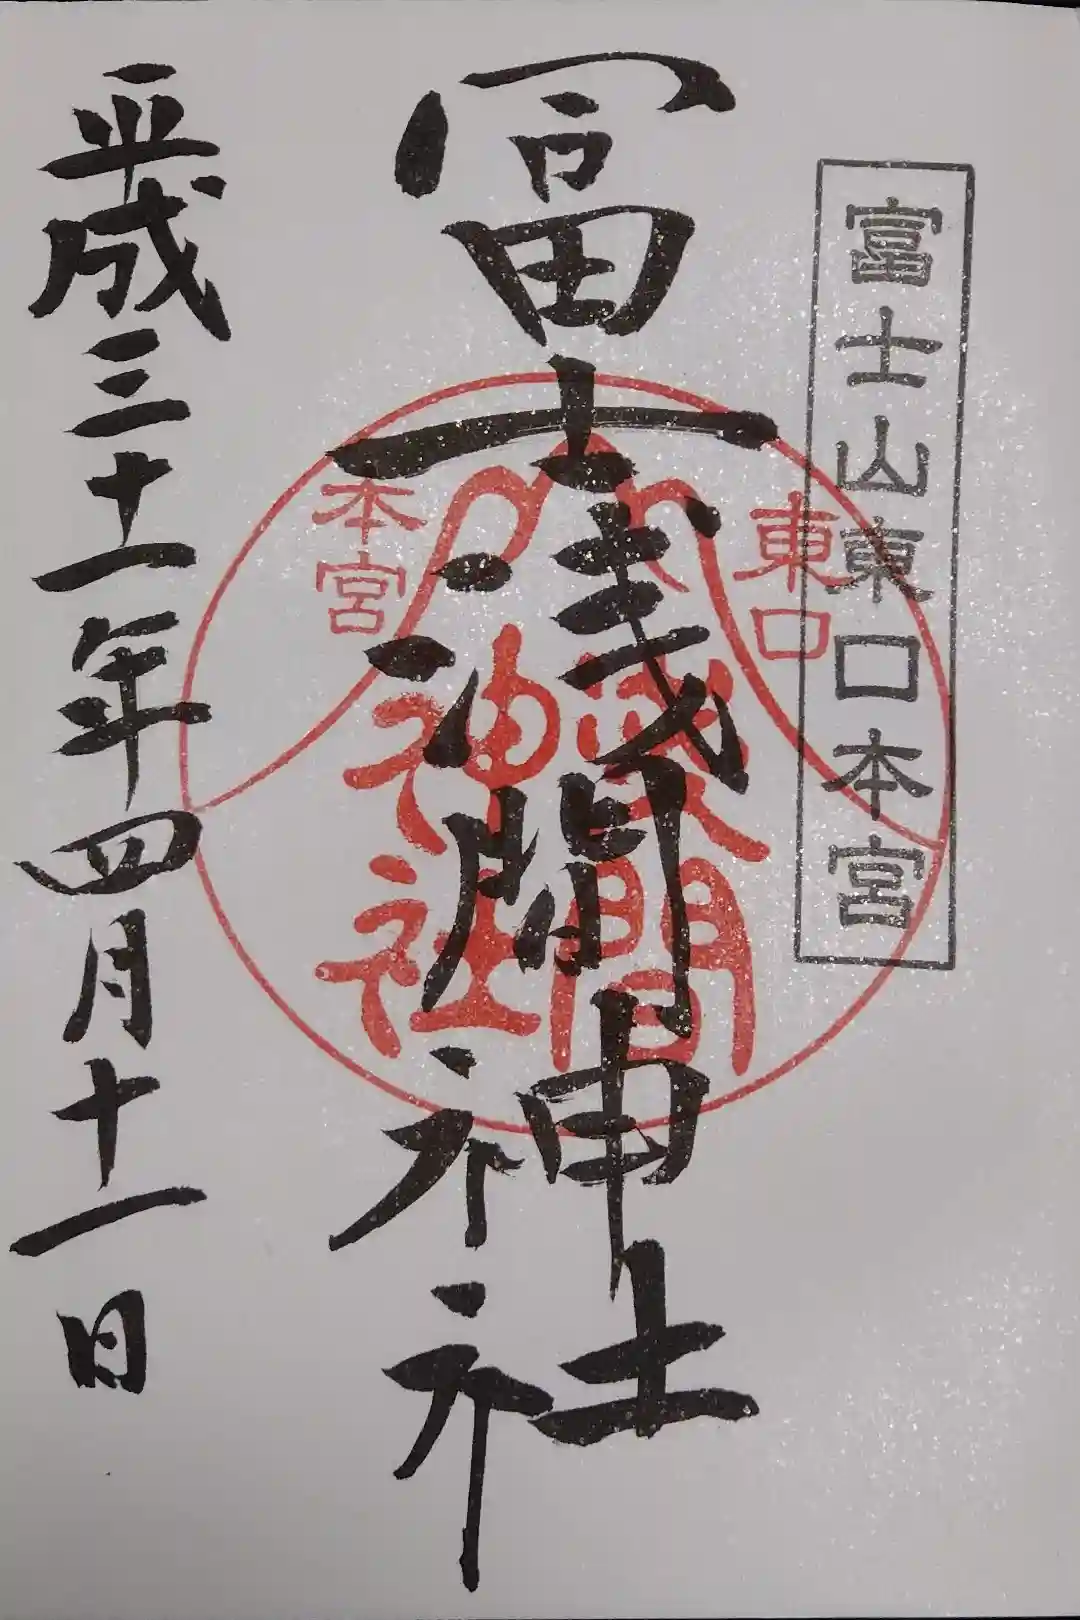 富士山東口本宮
冨士浅間神社
東口
本宮
浅間
神社
平成三十一年四月十一日